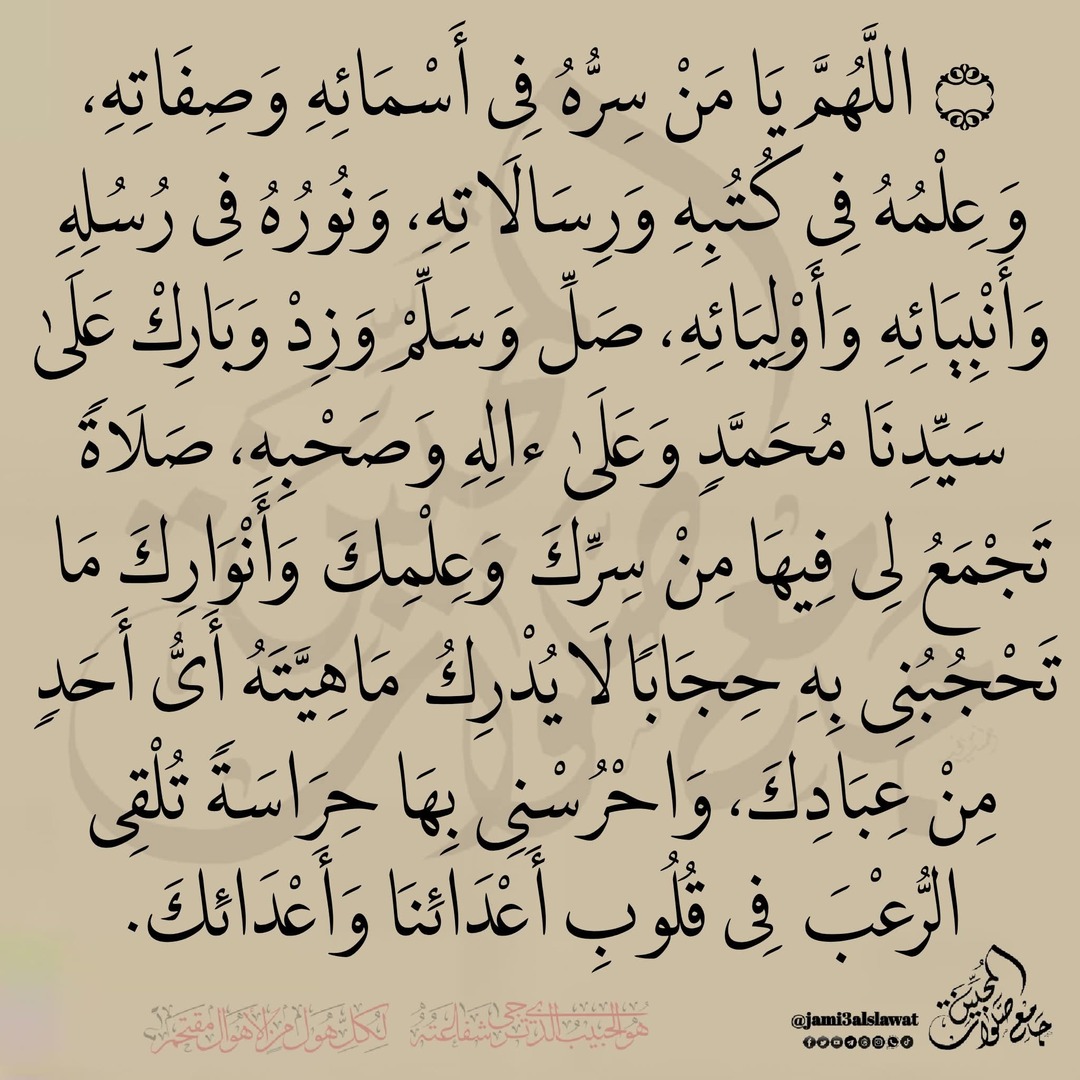 اللَّهُمَّ يَا مَنْ سِرُّهُ فِى أَسْمَائِهِ وَصِفَاتِهِ،
وَعِلْمُهُ فِى كُتُبِهِ وَرِسَالَاتِهِ، وَنُورُهُ فِى رُسُلِهِ
وَأَنْبِيَائِهِ وَأَوْلِيَائِهِ، صَلِّ وَسَلِّمْ وَزِدْ وَبَارِكْ عَلَىٰ
سَيِّدِنَا مُحَمَّدٍ وَعَلَىٰ ءالِهِ وَصَحْبِهِ، صَلَاةً
تَجْمَعُ لِى فِيهَا مِنْ سِرِّكَ وَعِلْمِكَ وَأَنْوَارِكَ مَا
تَحْجُبُنِى بِهِ حِجَابًا لَا يُدْرِكُ مَاهِيَّتَهُ أَىُّ أَحَدٍ
مِنْ عِبَادِكَ، وَاحْرُسْنِى بِهَا حِرَاسَةً تُلْقِى
الرُّعْبَ فِى قُلُوبِ أَعْدَائِنَا وَأَعْدَائِكَ.
جامع صلوات المحبين
@jami3alslawat
هو الحبيب الذي ترجى شفاعته لكل هول من الأهوال مقتحم